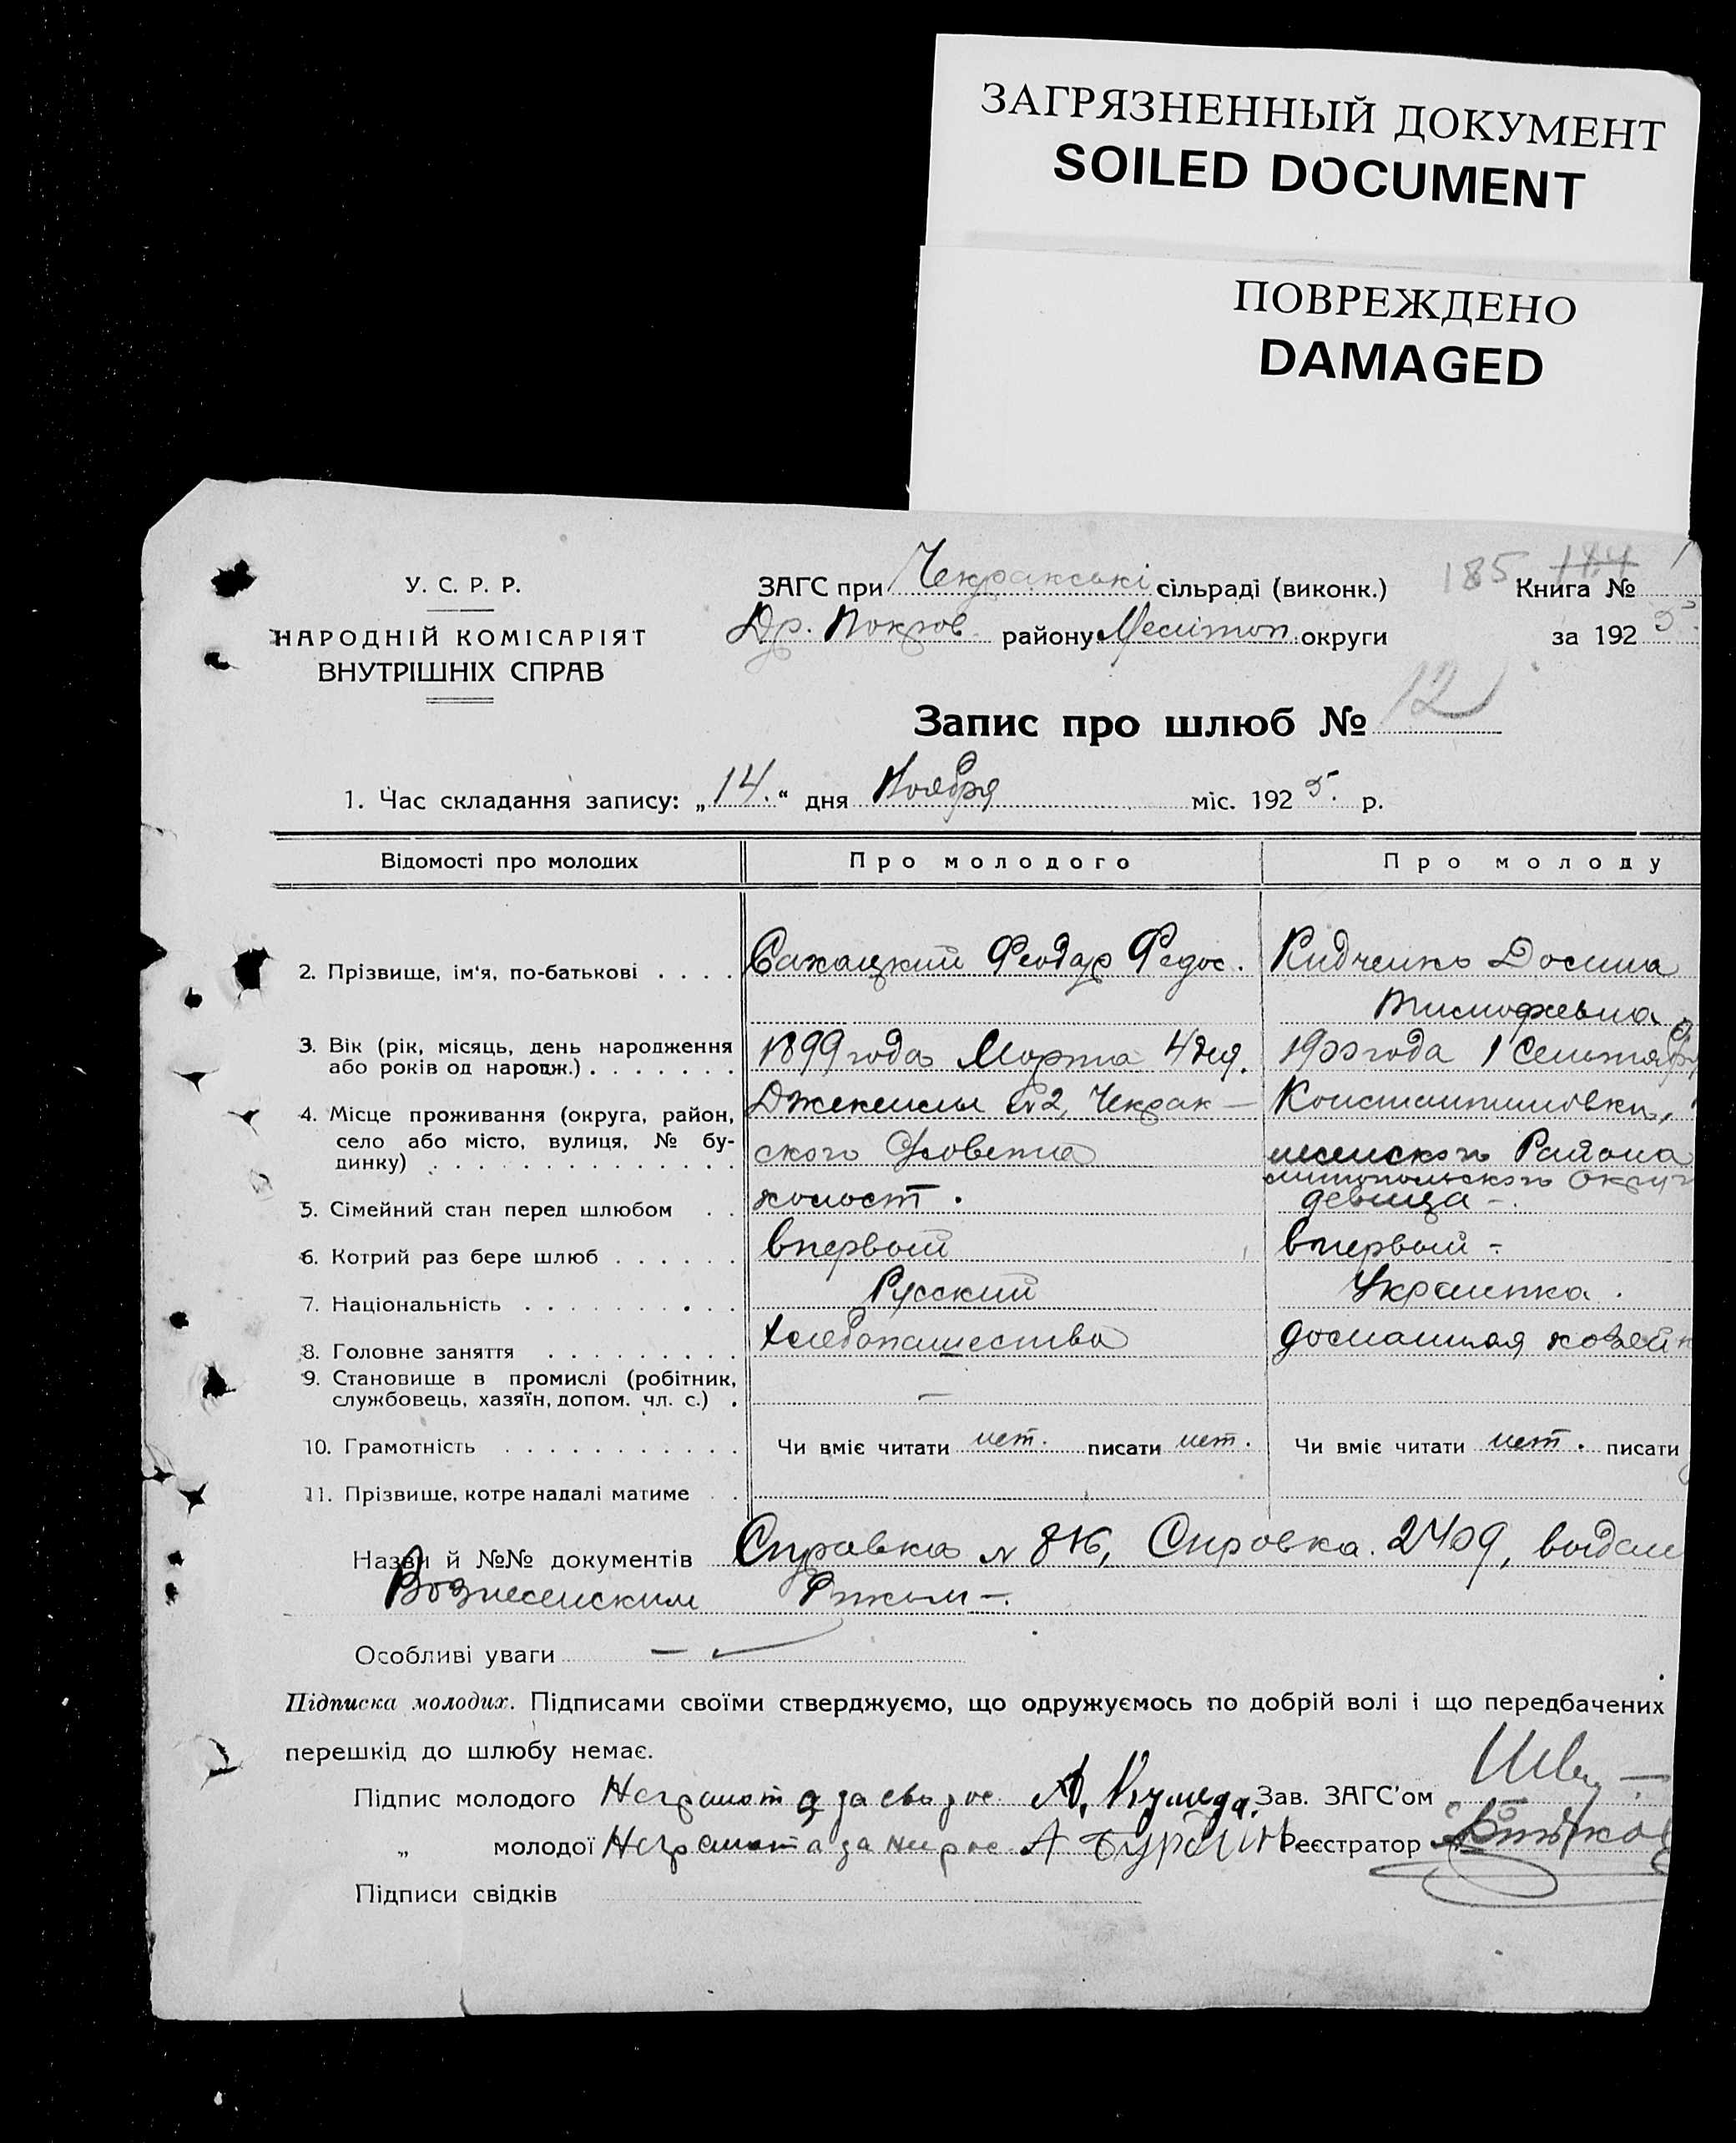 ЗАГРЯЗНЕННЫЙ ДОКУМЕНТ
SOILED DOCUMENT
ПОВРЕЖДЕНО
DAMAGED
У. С. Р. Р.
НАРОДНІЙ КОМІСАРІЯТ
ВНУТРІШНІХ СПРАВ
ЗАГС при Чекракські сільраді (виконк.)
185 184 Книга №
Др. Покров району Мелітоп. округи
за 192 5.
Запис про шлюб № 12
1. Час складання запису: „14.“ дня Ноября міс. 192 5. р.
Відомості про молодих Про молодого Про молоду
2. Прізвище, ім'я, по-батькові . . . . Сахацкий Феодор Федос. Кидченко Домна
Тимофевна
3. Вік (рік, місяць, день народження 1899 года Марта 4 дня. 1900 года 1 Сентября
або років од народж.) . . . . . . .
4. Місце проживання (округа, район, село або місто, вулиця, № будинку) . . . Дженешы №2, Чекрак- Константиновки,
ского Совета менского Района
литопольского Округ
5. Сімейний стан перед шлюбом . . холост. девица -.
6. Котрий раз бере шлюб . . . . . . впервый впервый -
7. Національність . . . . . . . . . . Русский Украинка.
8. Головне заняття . . . . . . . . . хлебопашество домашняя хозяйк
9. Становище в промислі (робітник,
службовець, хазяїн, допом. чл. с.) . —
10. Грамотність . . . . . . . . . . . Чи вміє читати нет. писати нет. Чи вміє читати нет. писати
11. Прізвище, котре надалі матиме . .
Назви й №№ документів Справка № 816, Справка. 2409, выдан
Вознесенским Риком -.
Особливі уваги —
Підписка молодих. Підписами своїми стверджуємо, що одружуємось по добрій волі і що передбачених
перешкід до шлюбу немає.
Підпис молодого Неграмот а за его рос. А. Зав. ЗАГС'ом
„ молодої Неграмота за нир рос. А Реєстратор
Підписи свідків